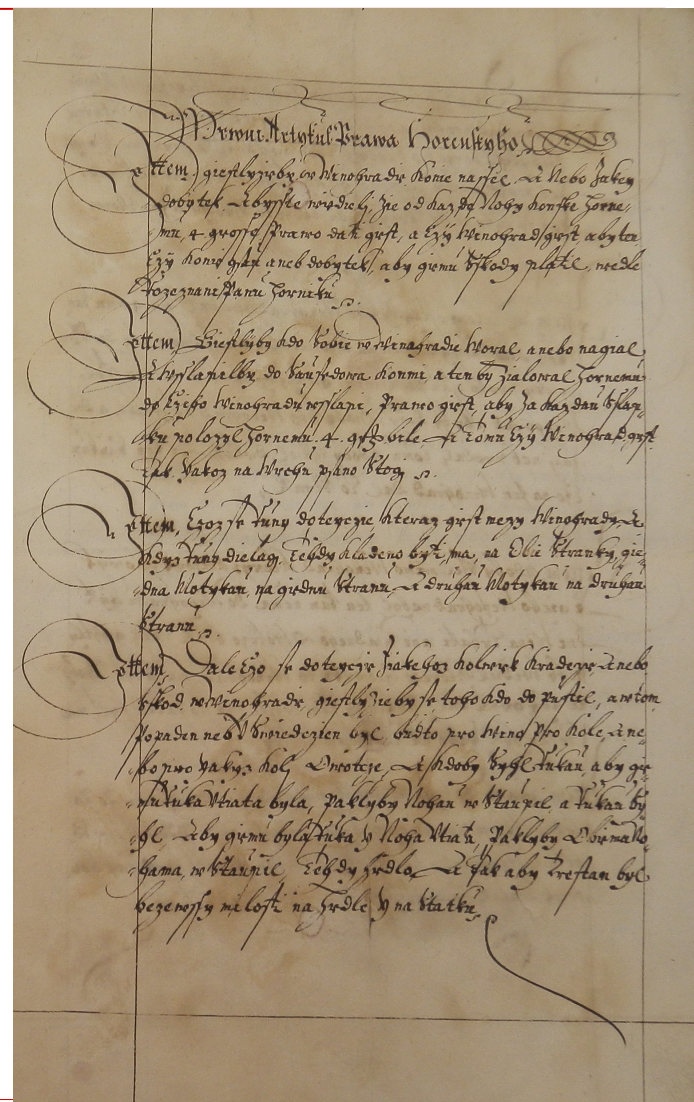 Prwni Artykul Prawa Horenskyho
Ittem, giestlyzeby w Winohradie Konie nassel, A Nebo Jaken
dobytek. Abyste wiedieli, Zie od Kazde Nohy Konske horne-
mu, 4 grosse Prawo dati gest, a Czÿ Winohrad gest, aby ten
Czÿ Koniv gsau aneb dobytek, aby giemu Sskody platil, wedle
Rozeznani Panu horniku.
Ittem, Giestlyby kdo Sobie w Winagradie Woral anebo nagial
A Wysslapielby do Sausedowa Konmi a ten by Zialowal hornemu
do Czieho Winohradu wsslapi, Prawo gest, aby Za kazdau Sslap-
ku polozyl hornemu 4. gss bile. A tomu Czÿ Winohrad gest
Tak Yakoz na Wrchu psano Stogj.
Ittem, Czoz se Tuny doteycze, kteraz gest mezy Winohrady, A
kdyz Tuny dielag, Tehdy kladeno byti, ma, na Obie Stranky, gie-
dna Motykau, na giednu Stranu, A druhau Motykau na druhau
Stranu.
Ittem, Dale Czo se doteycze Ziakehoz kolwiek kradeze, Anebo
Sskod w Winohradie, giestlyzie by se toho kdo do pustil, a w tom
Popaden neb Vswiedczen byl, budto pro Wino, Pro Kole, Ane-
bo pro yakyz kolj Owotcze, A kdoby Syhl Rukau, aby ge-
mu Ruka Vtiata byla, Paklyby Nohau w Staupil a Rukau Sy-
hl, Aby giemu byla Ruka y Noha Vtiata, Paklyby Obiema No-
hama, w Staupil, Tehdy hrdlo, A Pak aby Trestan byl
beze wssy milosti na hrdle y na Statku.